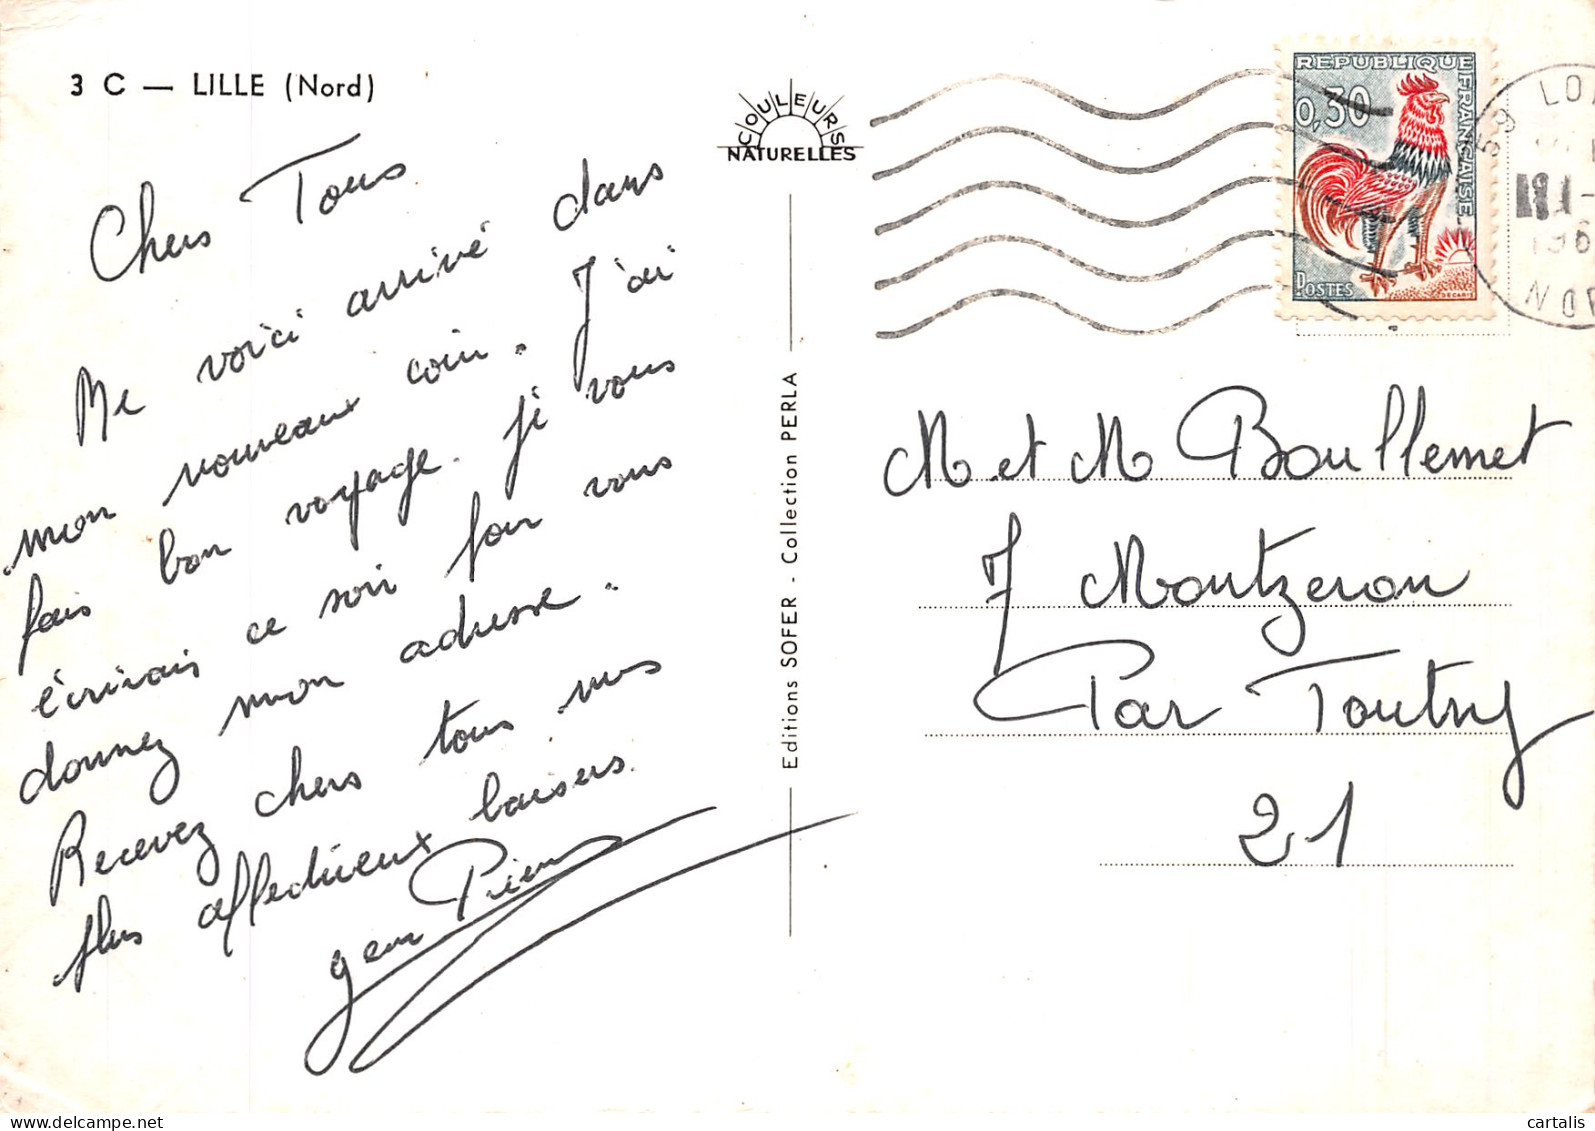 3 C — LILLE (Nord)
Chers Tous
Me voici arrivé dans
mon nouveaux coin. J'ai
fais bon voyage. je vous
écrirais ce soir pour vous
donnez mon adresse.
Recevez chers tous mes
plus affectueux baisers.
Jean Pierre
COULEURS
NATURELLES
Editions SOFER - Collection PERLA
REPUBLIQUE FRANÇAISE
0,30
POSTES
DECARIS
59 LO
196
NOR
M et M Boullemet
7 Montzeron
Par Toutry
21
cartalis
delcampe.net